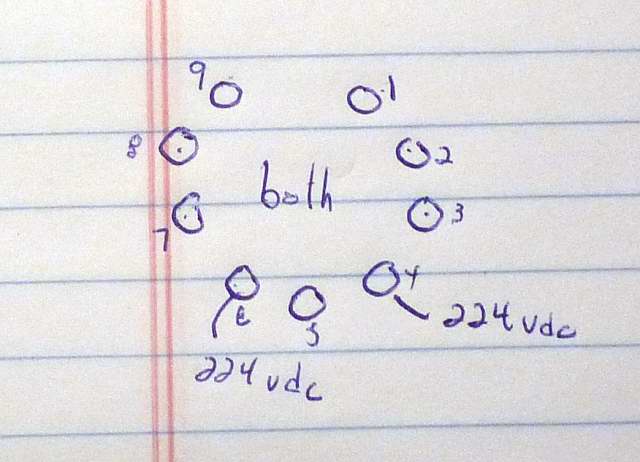 9 1
8 2
both
7 3
6 4
5
224 vdc
224 vdc